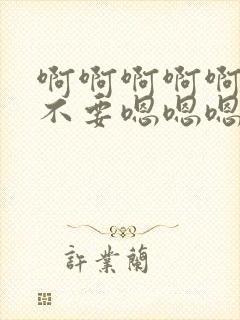 啊啊啊啊啊
不要嗯嗯嗯
許業蘭